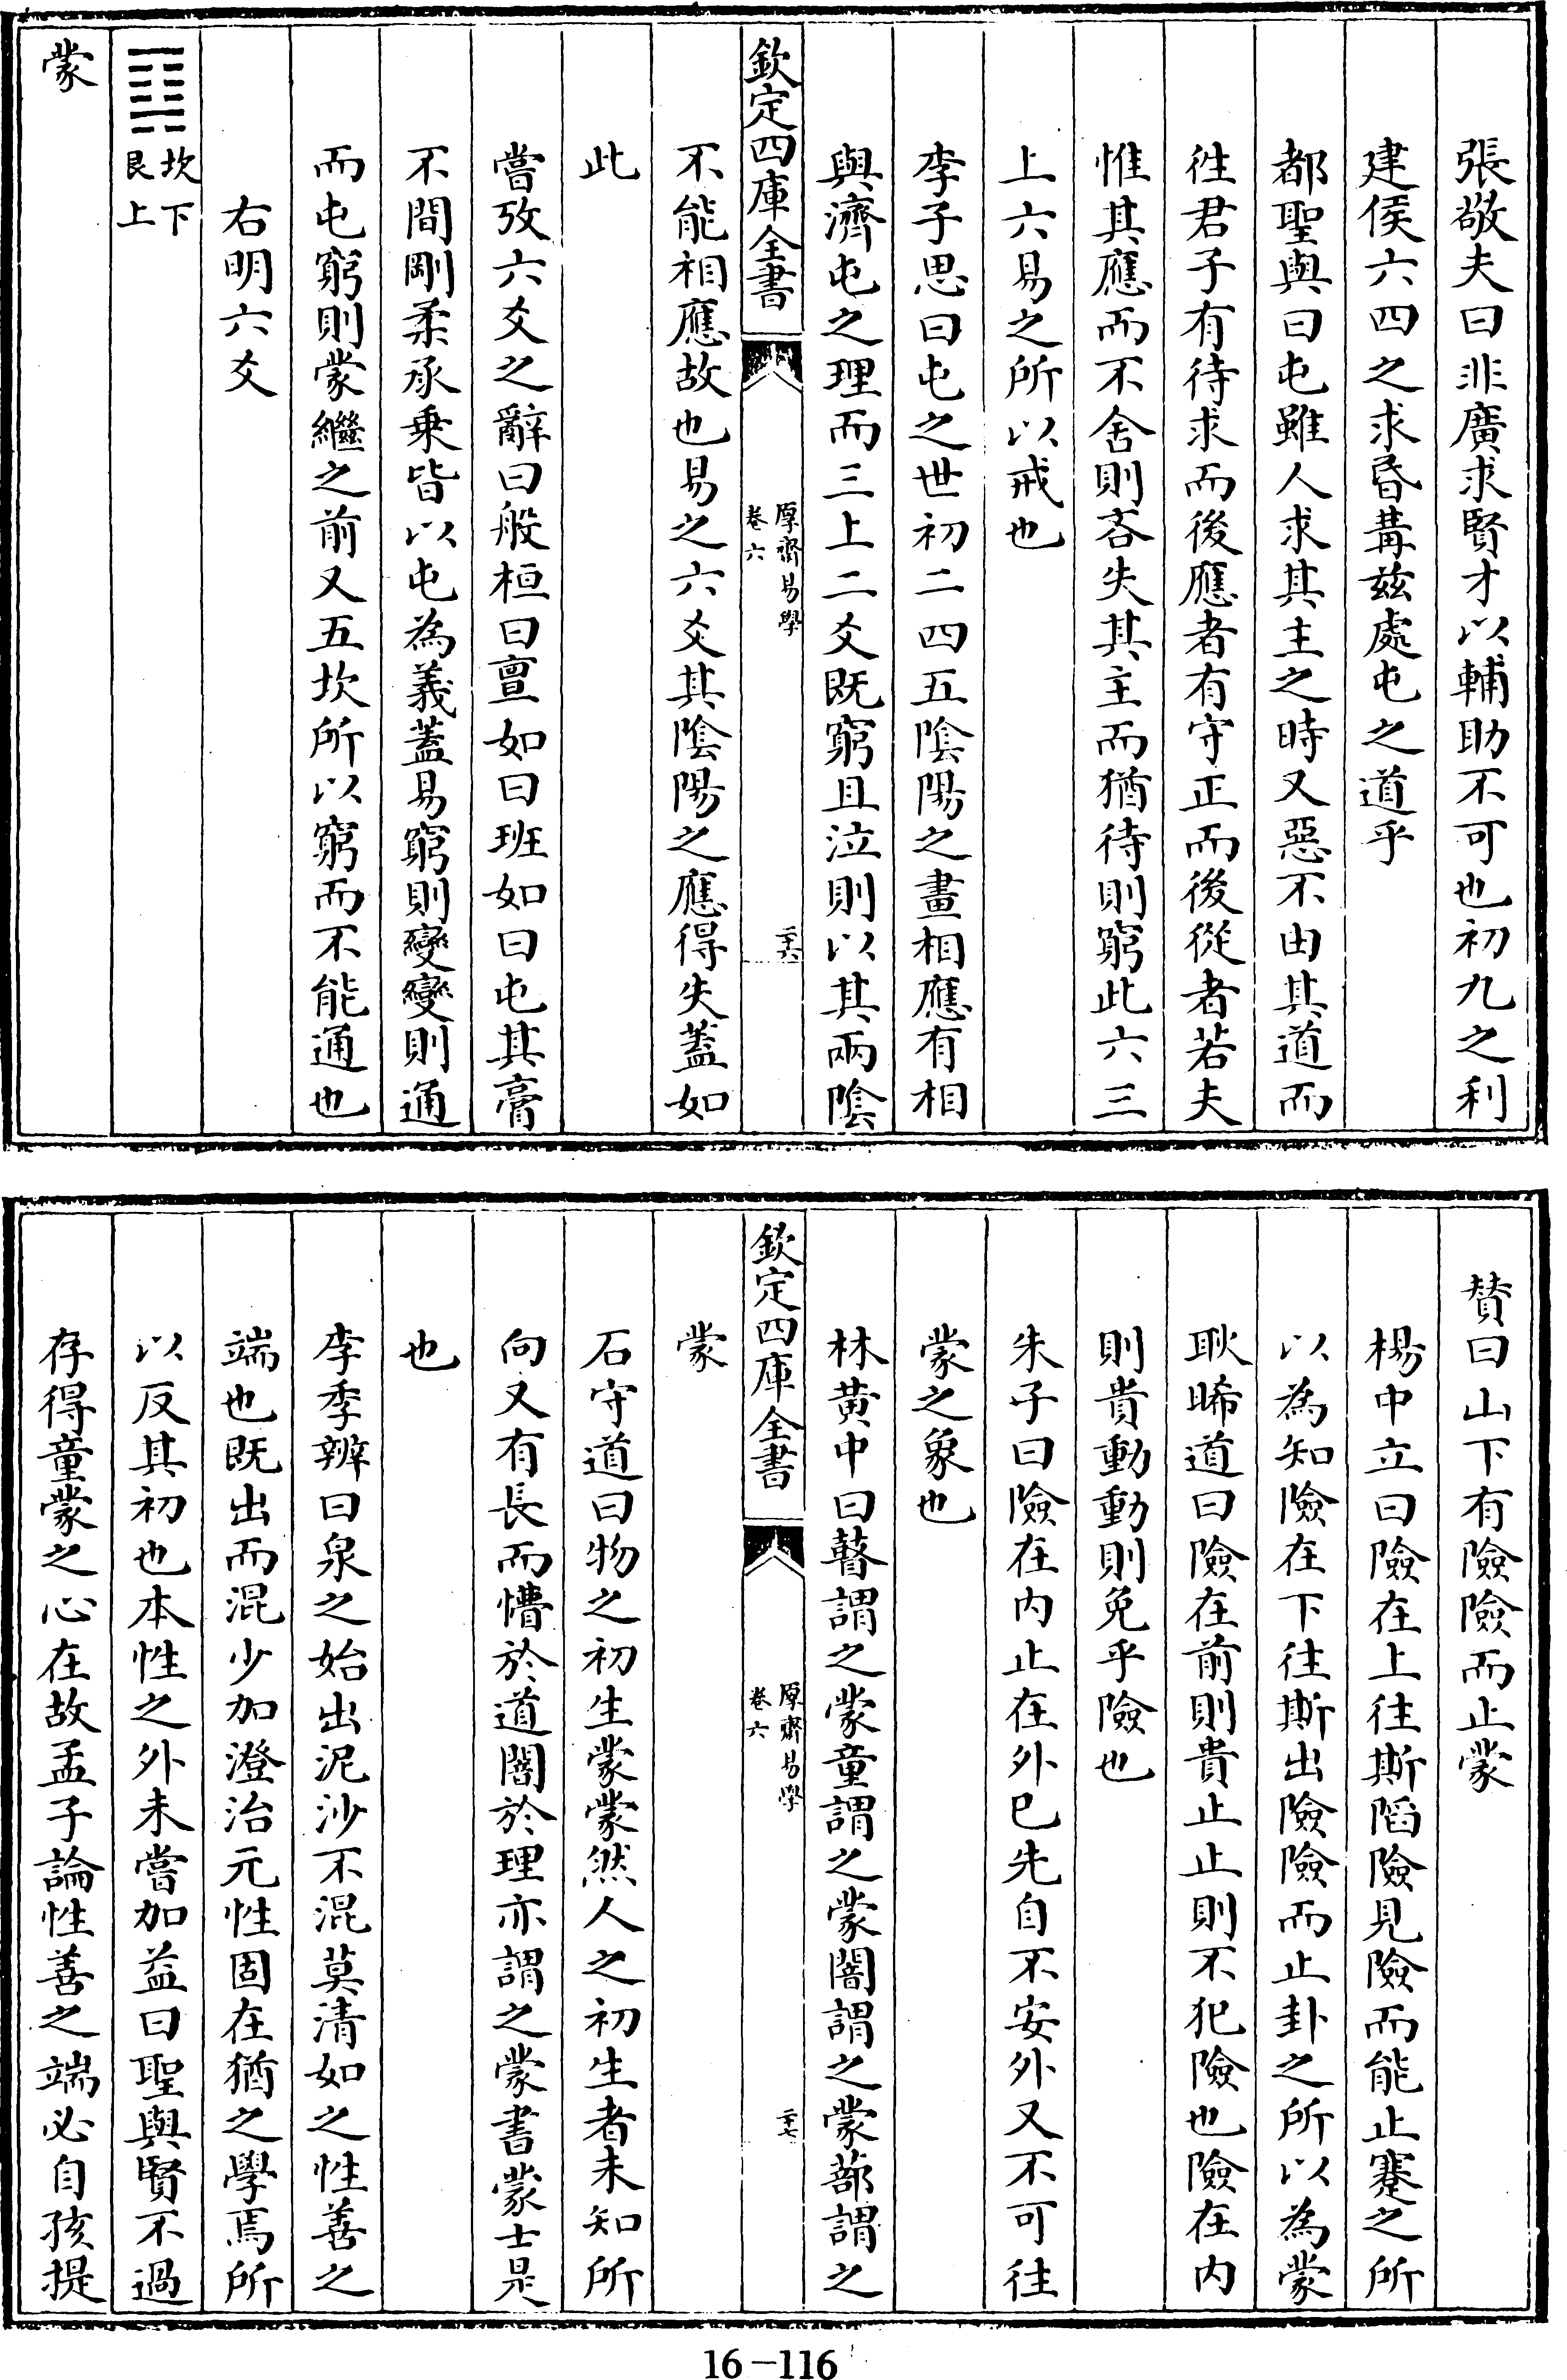 張敬夫曰非廣求賢才以輔助不可也初九之利
建侯六四之求昏冓兹處屯之道乎
都聖與曰屯雖人求其主之時又惡不由其道而
徃君子有待求而後應者有守正而後從者若夫
惟其應而不舍則吝失其主而猶待則窮此六三
上六易之所以戒也
李子思曰屯之世初二四五陰陽之畫相應有相
與濟屯之理而三上二爻既窮且泣則以其兩陰
欽定四庫全書
厚齋易學
卷六
二十六
不能相應故也易之六爻其陰陽之應得失蓋如
此
嘗攷六爻之辭曰般桓曰亶如曰班如曰屯其膏
不間剛柔承乗皆以屯為義蓋易窮則變變則通
而屯窮則蒙繼之前又五坎所以窮而不能通也
右明六爻
坎下
艮上
蒙
賛曰山下有險險而止蒙
楊中立曰險在上往斯䧟險見險而能止蹇之所
以為知險在下往斯出險險而止卦之所以為蒙
耿晞道曰險在前則貴止止則不犯險也險在内
則貴動動則免乎險也
朱子曰險在内止在外已先自不安外又不可往
蒙之象也
林黄中曰瞽謂之蒙童謂之蒙闇謂之蒙蔀謂之
欽定四庫全書
厚齋易學
卷六
二十七
蒙
石守道曰物之初生蒙蒙然人之初生者未知所
向又有長而懵於道闇於理亦謂之蒙書蒙士是
也
李季辨曰泉之始出泥沙不混莫清如之性善之
端也既出而混少加澄治元性固在猶之學焉所
以反其初也本性之外未嘗加益曰聖與賢不過
存得童蒙之心在故孟子論性善之端必自孩提
16-116